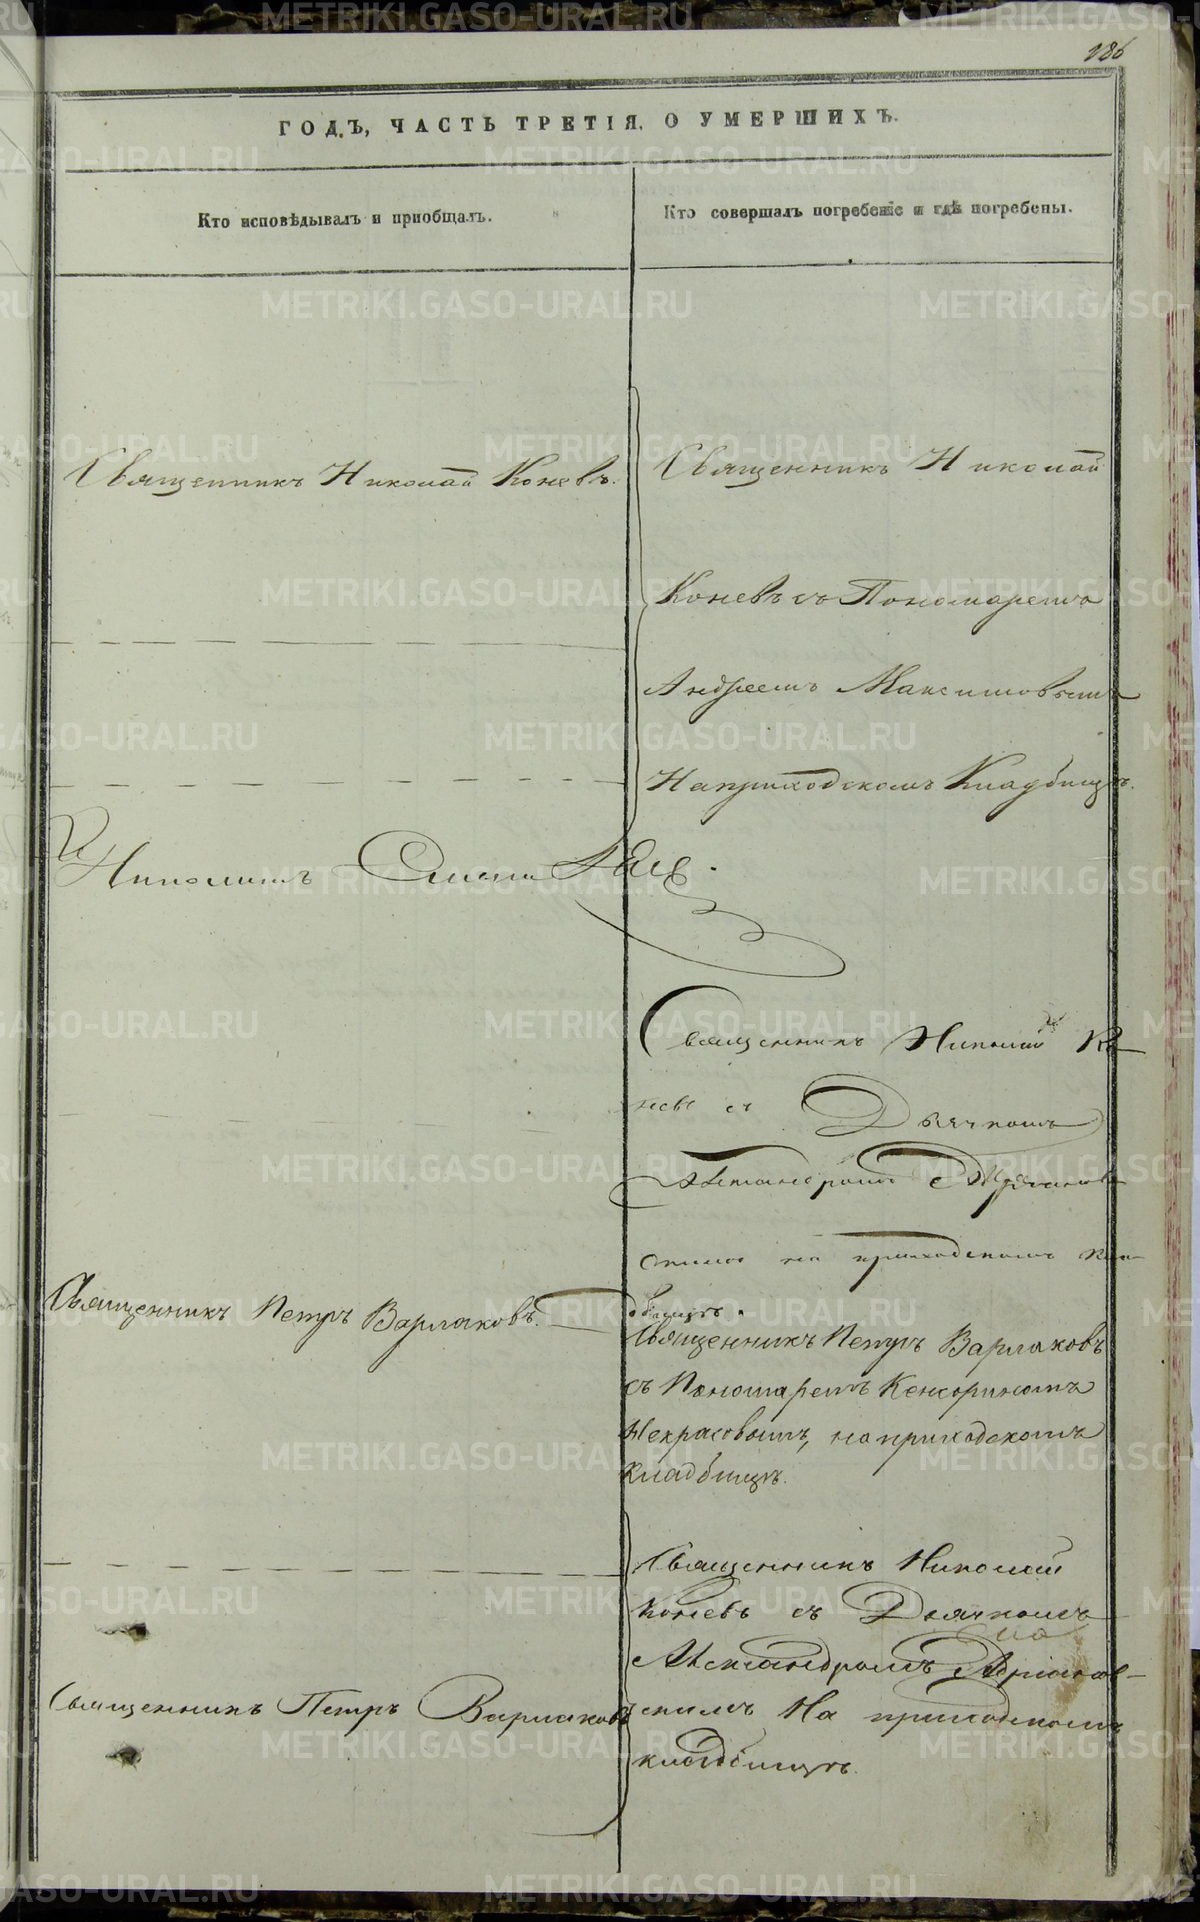 186
ГОДЪ, ЧАСТЬ ТРЕТІЯ, О УМЕРШИХЪ.
Кто исповѣдывалъ и приобщалъ.
Кто совершалъ погребеніе и гдѣ погребены.
Священникъ Николай Коневъ.
Священникъ Николай
Коневъ съ Пономаремъ
Андреемъ Максимовымъ
На приходскомъ Кладбищѣ.
Священникъ Николай Ко-
невъ съ Дьячкомъ
Александромъ Адріанов-
скимъ на приходскомъ кла-
дбищѣ.
Священникъ Петръ Варлаковъ.
Священникъ Петръ Варлаковъ
съ Пономаремъ Кенсориномъ
Некрасовымъ, на приходскомъ
кладбищѣ.
Священникъ Николай
Коневъ съ Дьячкомъ
Александромъ Адріанов-
скимъ На приходскомъ
кладбищѣ.
Священникъ Петръ Варлаковъ
METRIKI.GASO-URAL.RU